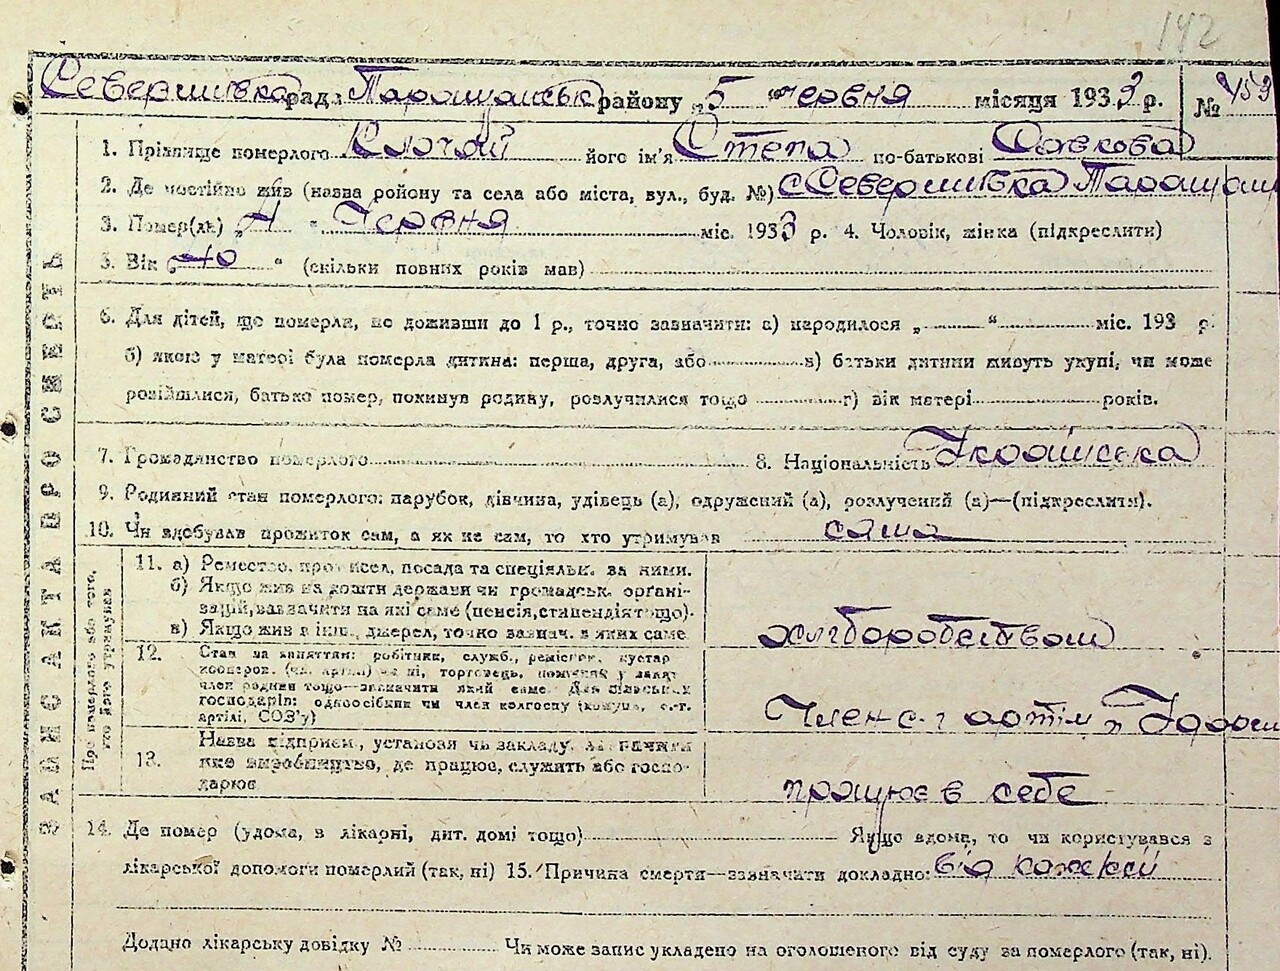 142
Северинівка рада Таращанськ району „5 червня місяця 1933 р. № 453
1. Прізвище померлого його ім'я Степа по-батькові Савкова
2. Де постійно жив (назва району та села або міста, вул., буд. №) с Северинівка Таращан
3. Помер(ла) „4 " Червня міс. 1933 р. 4. Чоловік, жінка (підкреслити)
5. Вік „40 " (скільки повних років мав)
6. Для дітей, що померли, не доживши до 1 р., точно зазначити: а) народилося „ " міс. 193 р.
б) якою у матері була померла дитина: перша, друга, або в) батьки дитини живуть укупі, чи може
розійшлися, батько помер, покинув родину, розлучилися тощо г) вік матері років.
7. Громадянство померлого 8. Національність Українська
9. Родинний стан померлого: парубок, дівчина, удівець (а), одружений (а), розлучений (а)—(підкреслити).
10. Чи здобував прожиток сам, а як не сам, то хто утримував сама
ЗАПИС АКТА ПРО СМЕРТЬ
Про померлого або того,
хто його утримував
11. а) Ремество, промисел, посада та спеціяльн. за ними.
б) Якщо жив на кошти держави чи громадськ. органі-
зацій, зазначити на які саме (пенсія, стипендія тощо).
в) Якщо жив з інш. джерел, точно зазнач. з яких саме
хліборобством
12. Стан за заняттям: робітник, служб., ремісник, кустар
кооперов. (чл. артілі) чи ні, торговець, поміщик у
член родини тощо—зазначити який саме. Для сільських
господарів: одноосібник чи член колгоспу (комуна, с.-г.
артілі, СОЗ'у)
Член с-г артіли
13. Назва підприєм., установи чи закладу, зазначити
яке виробництво, де працює, служить або госпо-
дарює
працює в себе
14. Де помер (удома, в лікарні, дит. домі тощо) Якщо вдома, то чи користувався з
лікарської допомоги померлий (так, ні) 15. Причина смерти—зазначати докладно:
Додано лікарську довідку № Чи може запис укладено на оголошеного від суду за померлого (так, ні).